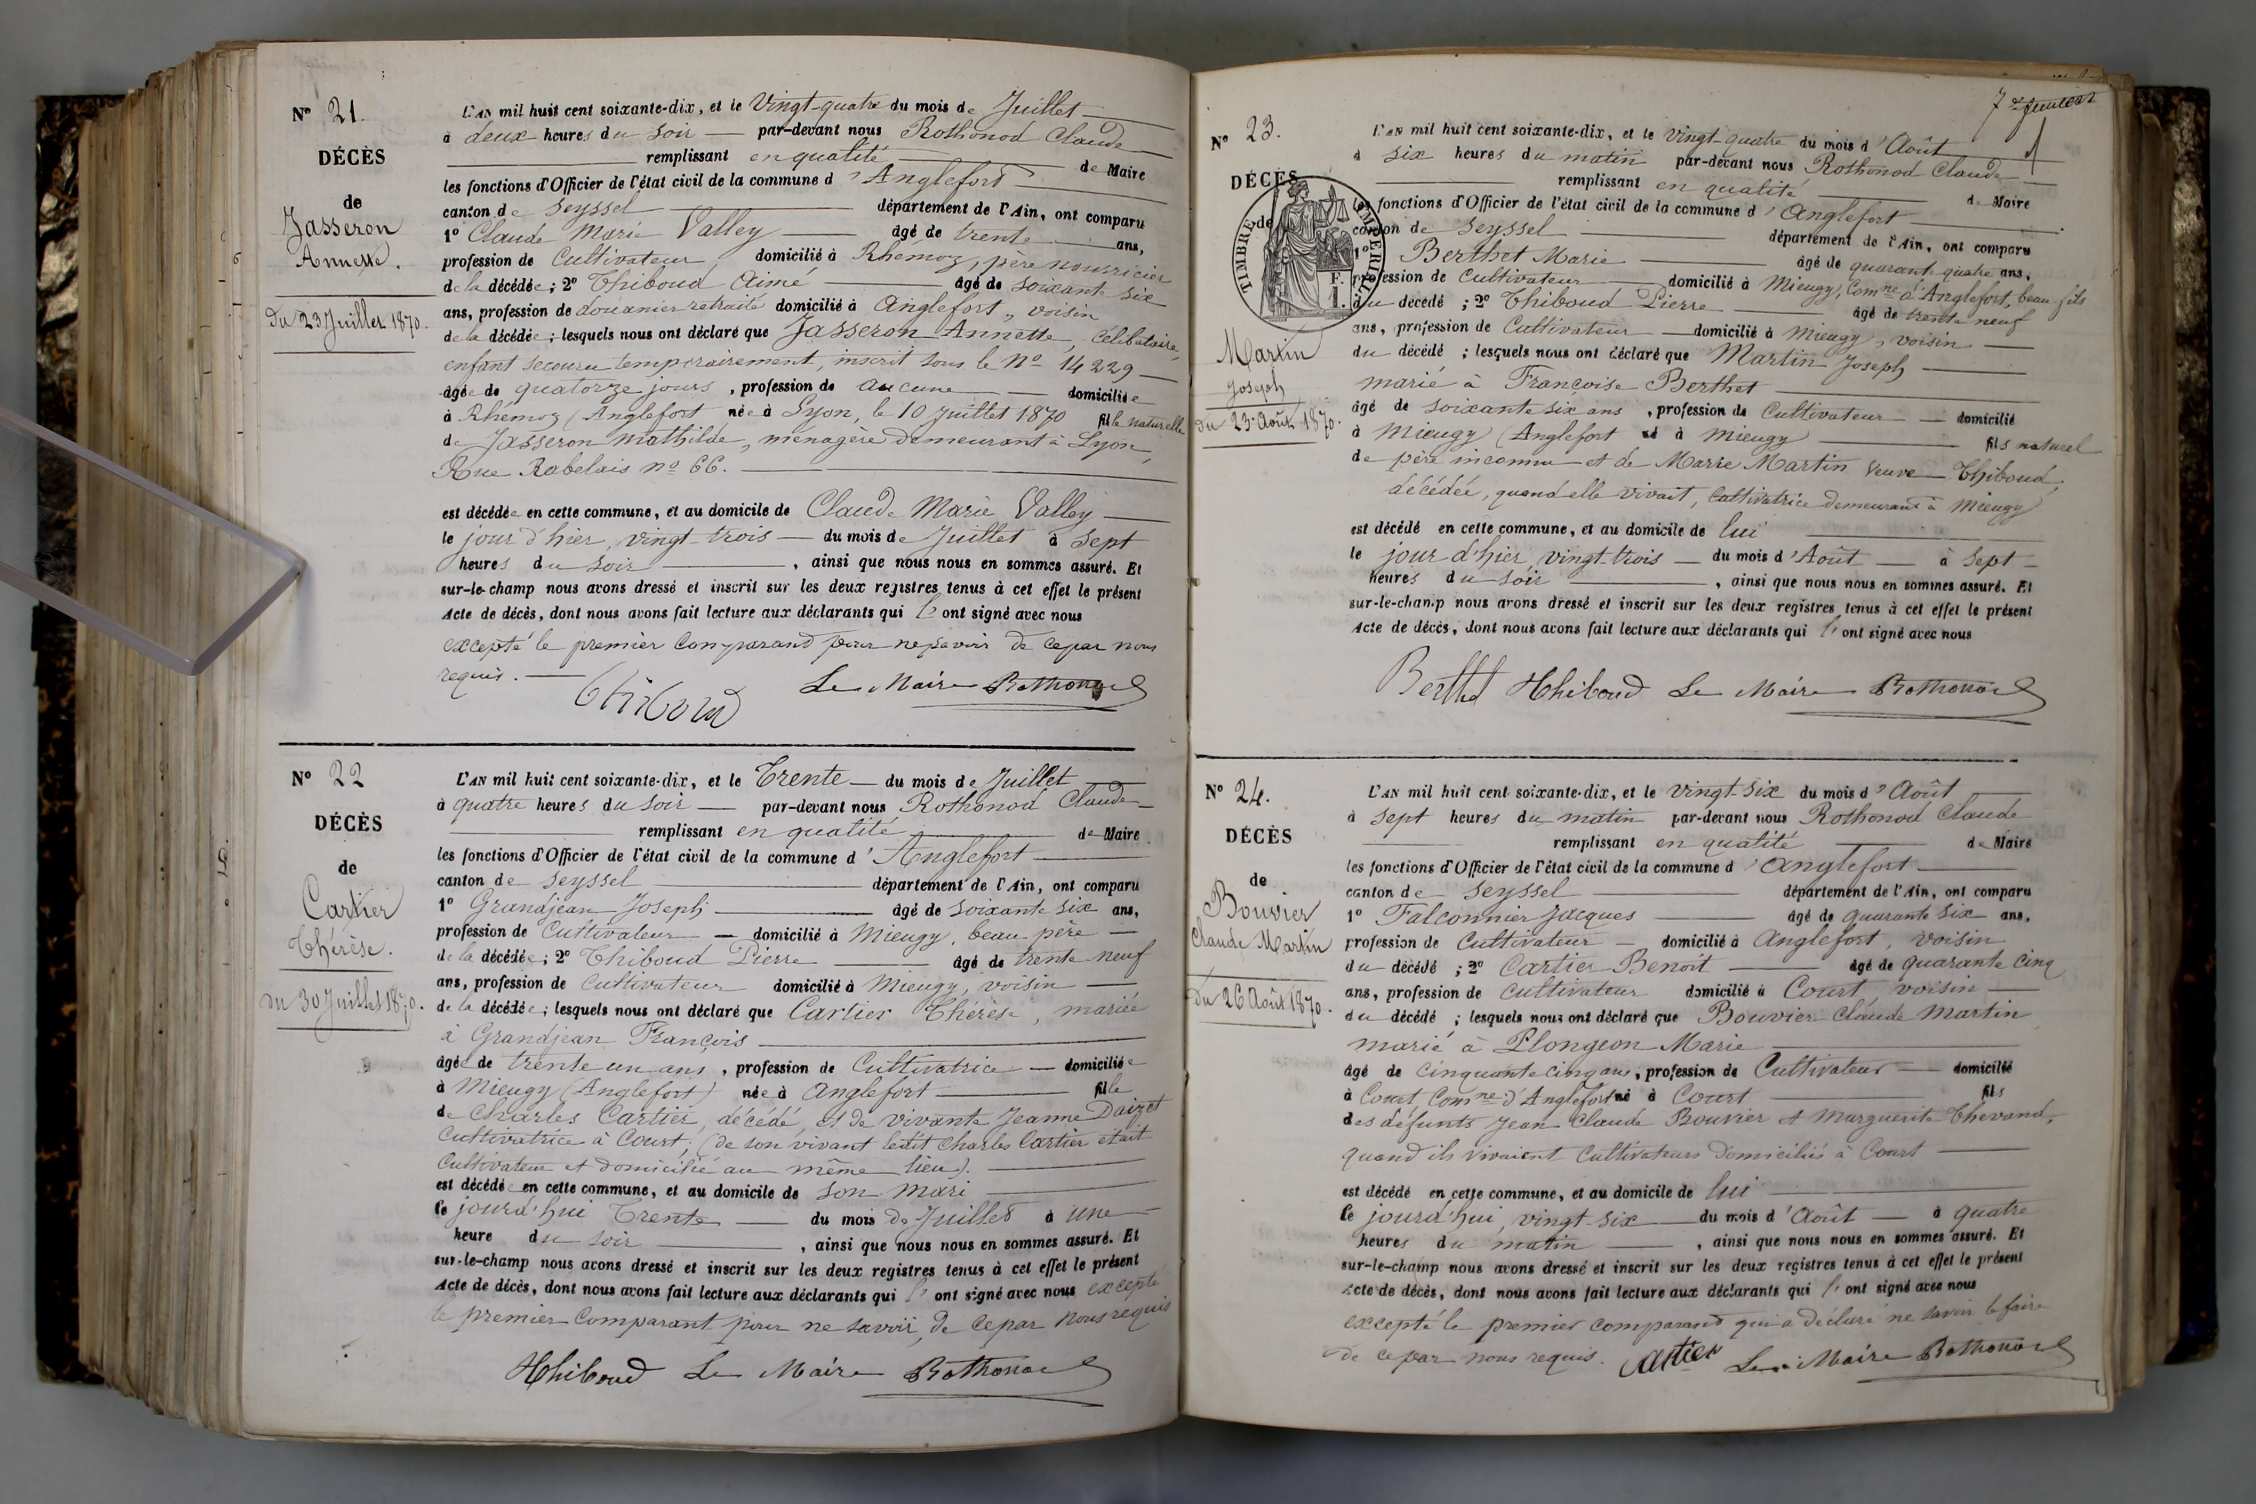 N° 21.
DÉCÈS
de
Jasseron
Annette.
Du 23 Juillet 1870.
L'AN mil huit cent soixante-dix, et le Vingt-quatre du mois de Juillet
à deux heures du soir par-devant nous Rothonod Claude
remplissant en qualité de Maire
les fonctions d'Officier de l'état civil de la commune d'Anglefort
canton de Seyssel département de l'Ain, ont comparu
1° Claude Marie Valley âgé de trente ans,
profession de Cultivateur, domicilié à Rhémoz, père nourricier
de la décédée; 2° Thiboud Aimé âgé de soixante six
ans, profession de douanier retraité domicilié à Anglefort, voisin
de la décédée; lesquels nous ont déclaré que Jasseron Annette, célibataire,
enfant secouru temporairement, inscrit sous le N° 14229
âgée de quatorze jours, profession de aucune domiciliée
à Rhémoz (Anglefort née à Lyon, le 10 Juillet 1870 fille naturelle
de Jasseron Mathilde, ménagère demeurant à Lyon,
Rue Rabelais n° 66.
est décédée en cette commune, et au domicile de Claude Marie Valley
le jour d'hier, vingt-trois du mois de Juillet à sept
heures du soir, ainsi que nous nous en sommes assuré. Et
sur-le-champ nous avons dressé et inscrit sur les deux registres tenus à cet effet le présent
Acte de décès, dont nous avons fait lecture aux déclarants qui l'ont signé avec nous
excepté le premier comparand pour ne savoir de ce par nous
requis.
Thiboud Le Maire Rothonod
N° 22
DÉCÈS
de
Cartier
Thérèse.
du 30 Juillet 1870.
L'AN mil huit cent soixante-dix, et le Trente du mois de Juillet
à quatre heures du soir par-devant nous Rothonod Claude
remplissant en qualité de Maire
les fonctions d'Officier de l'état civil de la commune d'Anglefort
canton de Seyssel département de l'Ain, ont comparu
1° Grandjean Joseph âgé de soixante six ans,
profession de Cultivateur domicilié à Mieugy, beau père
de la décédée; 2° Thiboud Pierre âgé de trente neuf
ans, profession de Cultivateur domicilié à Mieugy, voisin
de la décédée; lesquels nous ont déclaré que Cartier Thérèse, mariée
à Grandjean François
âgée de trente un ans, profession de Cultivatrice domiciliée
à Mieugy (Anglefort) née à Anglefort fille
de Charles Cartier, décédé, et de vivante Jeanne Daizet
Cultivatrice à Court; (de son vivant ledit Charles Cartier était
Cultivateur et domicilié au même lieu).
est décédée en cette commune, et au domicile de son mari
le jourd'hui Trente du mois de Juillet à une
heure du soir, ainsi que nous nous en sommes assuré. Et
sur-le-champ nous avons dressé et inscrit sur les deux registres tenus à cet effet le présent
Acte de décès, dont nous avons fait lecture aux déclarants qui l'ont signé avec nous excepté
le premier comparant pour ne savoir, de ce par nous requis
Thiboud Le Maire Rothonod
N° 23.
DÉCÈS
de
TIMBRE IMPÉRIAL
F.
1.
Martin
Joseph
du 23 Août 1870.
L'AN mil huit cent soixante-dix, et le vingt-quatre du mois d'Août
à six heures du matin par-devant nous Rothonod Claude
remplissant en qualité de Maire
les fonctions d'Officier de l'état civil de la commune d'Anglefort
canton de Seyssel département de l'Ain, ont comparu
1° Berthet Marie âgé de quarante quatre ans,
profession de Cultivateur domicilié à Mieugy, Comne d'Anglefort, beau fils
du décédé; 2° Thiboud Pierre âgé de trente neuf
ans, profession de Cultivateur domicilié à Mieugy, voisin
du décédé; lesquels nous ont déclaré que Martin Joseph
marié à Françoise Berthet
âgé de soixante six ans, profession de Cultivateur domicilié
à Mieugy (Anglefort né à Mieugy fils naturel
de père inconnu et de Marie Martin veuve Thiboud,
décédée, quand elle vivait, Cultivatrice demeurant à Mieugy
est décédé en cette commune, et au domicile de lui
le jour d'hier, vingt-trois du mois d'Août à sept
heures du soir, ainsi que nous nous en sommes assuré. Et
sur-le-champ nous avons dressé et inscrit sur les deux registres tenus à cet effet le présent
Acte de décès, dont nous avons fait lecture aux déclarants qui l'ont signé avec nous
Berthet Thiboud Le Maire Rothonod
N° 24.
DÉCÈS
de
Bouvier
Claude Martin
Du 26 Août 1870.
L'AN mil huit cent soixante-dix, et le vingt-six du mois d'Août
à sept heures du matin par-devant nous Rothonod Claude
remplissant en qualité de Maire
les fonctions d'Officier de l'état civil de la commune d'Anglefort
canton de Seyssel département de l'Ain, ont comparu
1° Falconnier Jacques âgé de quarante six ans,
profession de Cultivateur domicilié à Anglefort, voisin
du décédé; 2° Cartier Benoit âgé de quarante cinq
ans, profession de Cultivateur domicilié à Court, voisin
du décédé; lesquels nous ont déclaré que Bouvier Claude Martin
marié à Plongeon Marie
âgé de Cinquante cinq ans, profession de Cultivateur domicilié
à Court Comne d'Anglefort né à Court fils
des défunts Jean Claude Bouvier et Marguerite Thevand,
quand ils vivaient Cultivateurs domiciliés à Court
est décédé en cette commune, et au domicile de lui
le jourd'hui, vingt-six du mois d'Août à quatre
heures du matin, ainsi que nous nous en sommes assuré. Et
sur-le-champ nous avons dressé et inscrit sur les deux registres tenus à cet effet le présent
Acte de décès, dont nous avons fait lecture aux déclarants qui l'ont signé avec nous
excepté le premier comparand qui a déclaré ne savoir le faire
de ce par nous requis. Cartier Le Maire Rothonod